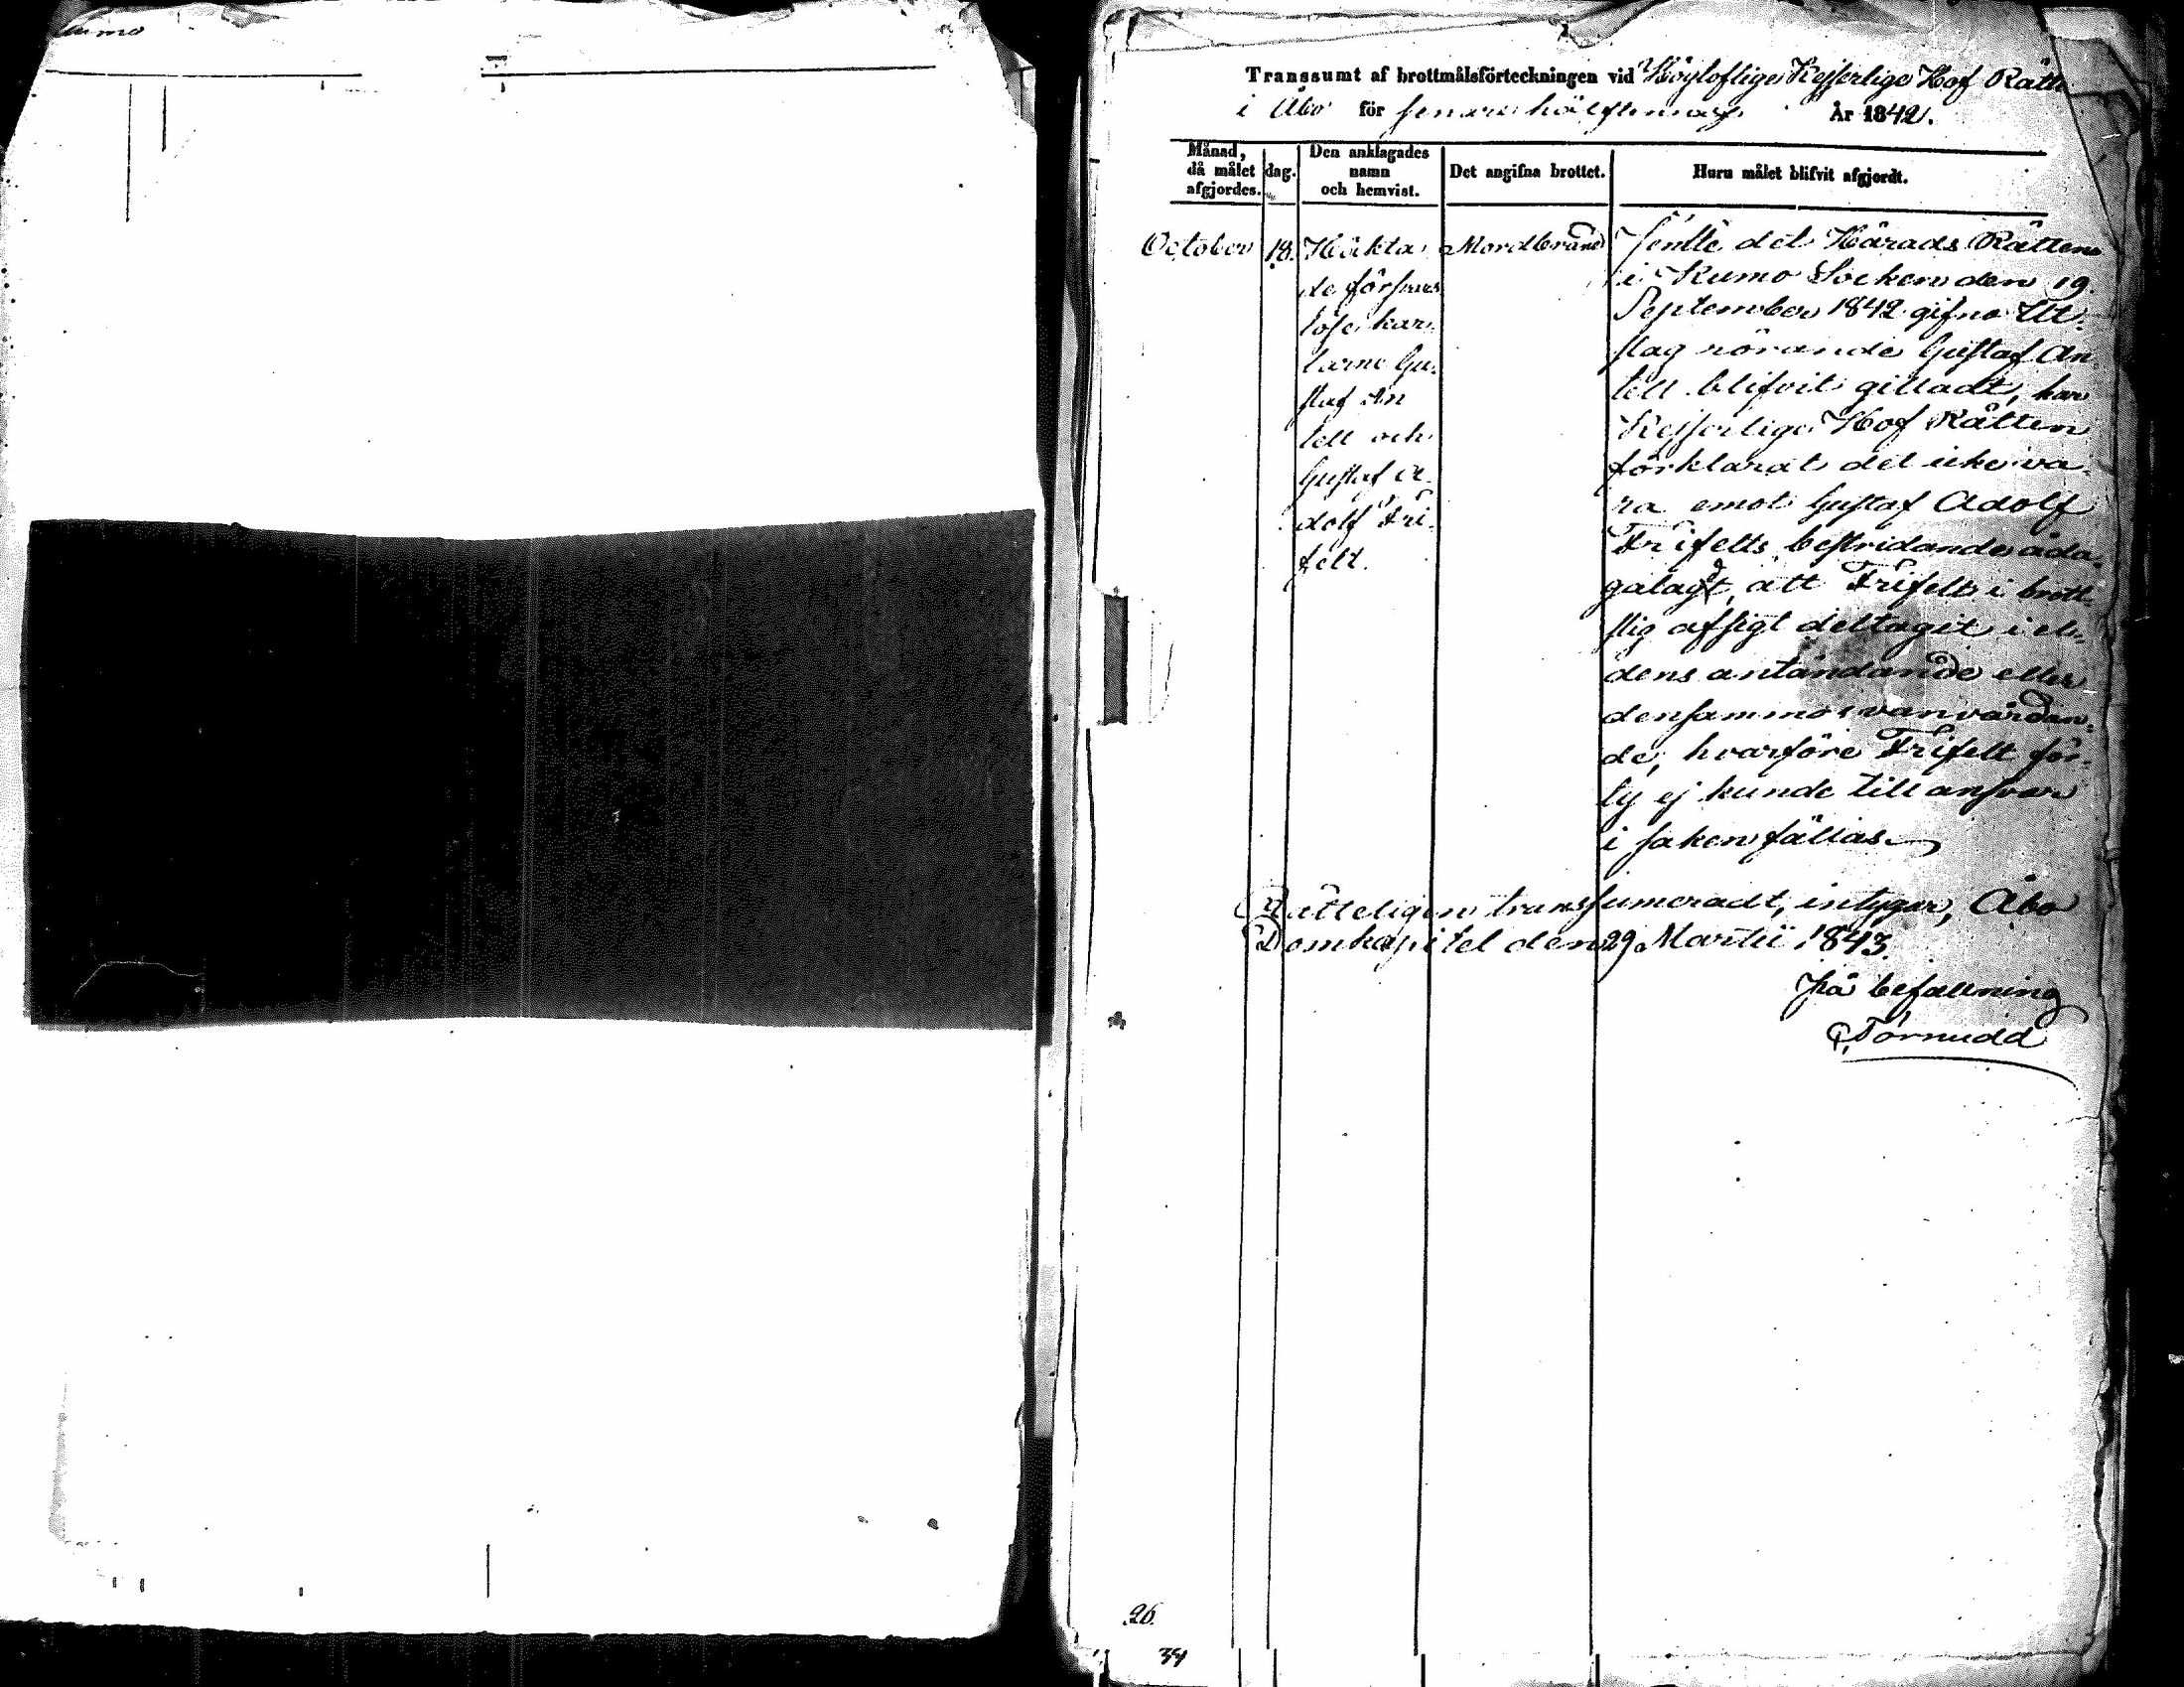 Kumo
Transsumt af brottmålsförteckningen vid Högloflige Kejserlige Hof Rätt
i Åbo för senare hälften af År 1842.
Månad, då målet afgjordes.
dag.
Den anklagades namn och hemvist.
Det angifna brottet.
Huru målet blifvit afgjordt.
October
18.
Häkta
de försvars
löse kar-
larne Gu-
staf An
tell och
Gustaf A-
dolf Fri-
felt.
Mordbrand
det Härads Rättens
i Kumo Socken den 19
September 1842 gifna Ut-
slag rörande Gustaf An
tell blifvit gilladt, har
Kejserlige Hof Rätten
förklarat det icke va-
ra emot Gustaf Adolf
Frifelts bestridande åda-
galagt, att Frifelt i brott-
slig afsigt deltagit i el-
dens antändande eller
densammas vanvårdan-
de, hvarföre Frifelt för-
ty ej kunde till ansvar
i saken fällas.
Rätteligen transsumeradt, intygar, Åbo
Domkapitel den 29 Martii 1843.
På befallning
Törnudd
26.
34